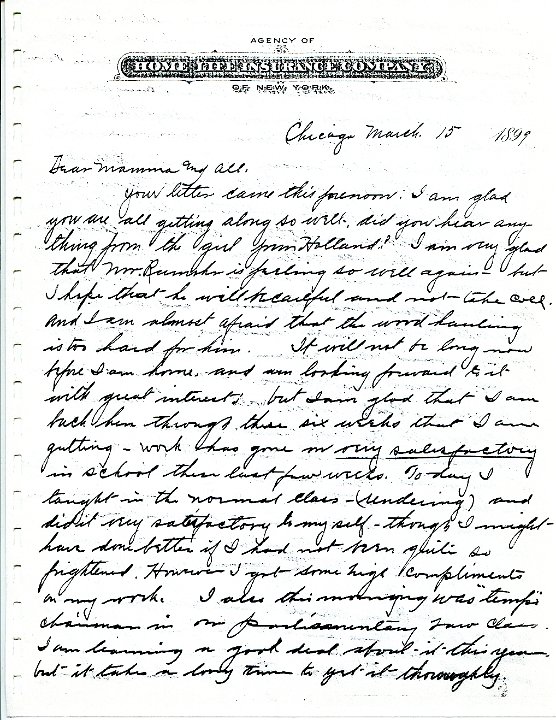 AGENCY OF
HOME LIFE INSURANCE COMPANY
OF NEW YORK.
Chicago March. 15 1899
Dear Mamma and all.
Your letter came this forenoon. I am glad
you are all getting along so well. did you hear any
thing from the girl from Holland? I am very glad
that Mr is feeling so well again - but
I hope that he will be careful and not take cold.
and I am almost afraid that the wood hauling
is too hard for him. It will not be long now
before I am home. and am looking forward to it
with great interest. but I am glad that I am
back here through these six weeks that I am
getting - work has gone on very satisfactory
in school these last few weeks. To day I
taught in the normal class - (rendering) and
did it very satisfactory to my self - though I might
have done better if I had not been quite so
frightened. However I got some high compliments
on my work. I also this morning was "temp"
chairman in our parlimentary Law Class.
I am learning a good deal about it this year
but it takes a long time to get it thoroughly.